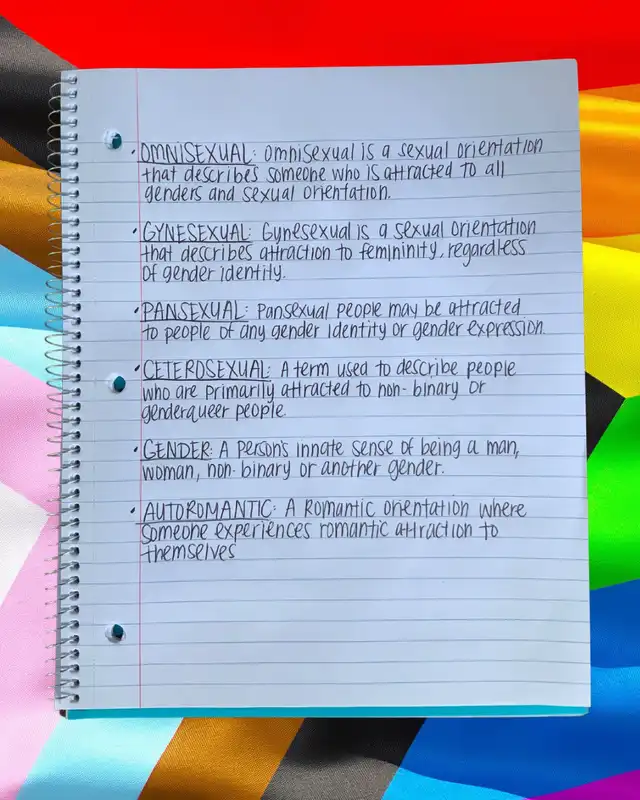 • OMNISEXUAL: Omnisexual is a sexual orientation
that describes someone who is attracted to all
genders and sexual orientation.
• GYNESEXUAL: Gynesexual is a sexual orientation
that describes attraction to femininity, regardless
of gender identity.
• PANSEXUAL: Pansexual people may be attracted
to people of any gender identity or gender expression.
• CETEROSEXUAL: A term used to describe people
who are primarily attracted to non-binary or
genderqueer people
• GENDER: A person's innate sense of being a man,
woman, non-binary or another gender.
• AUTOROMANTIC: A Romantic orientation where
someone experiences romantic attraction to
themselves